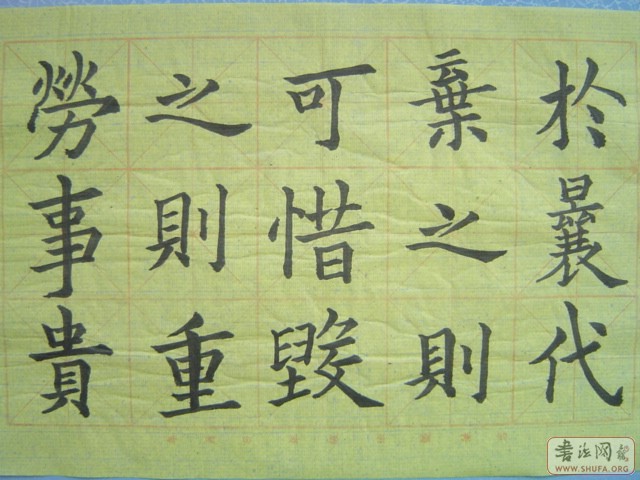 於曩代
棄之則
可惜毀
之則重
勞事貴
書法网
WWW.SHUFA.ORG